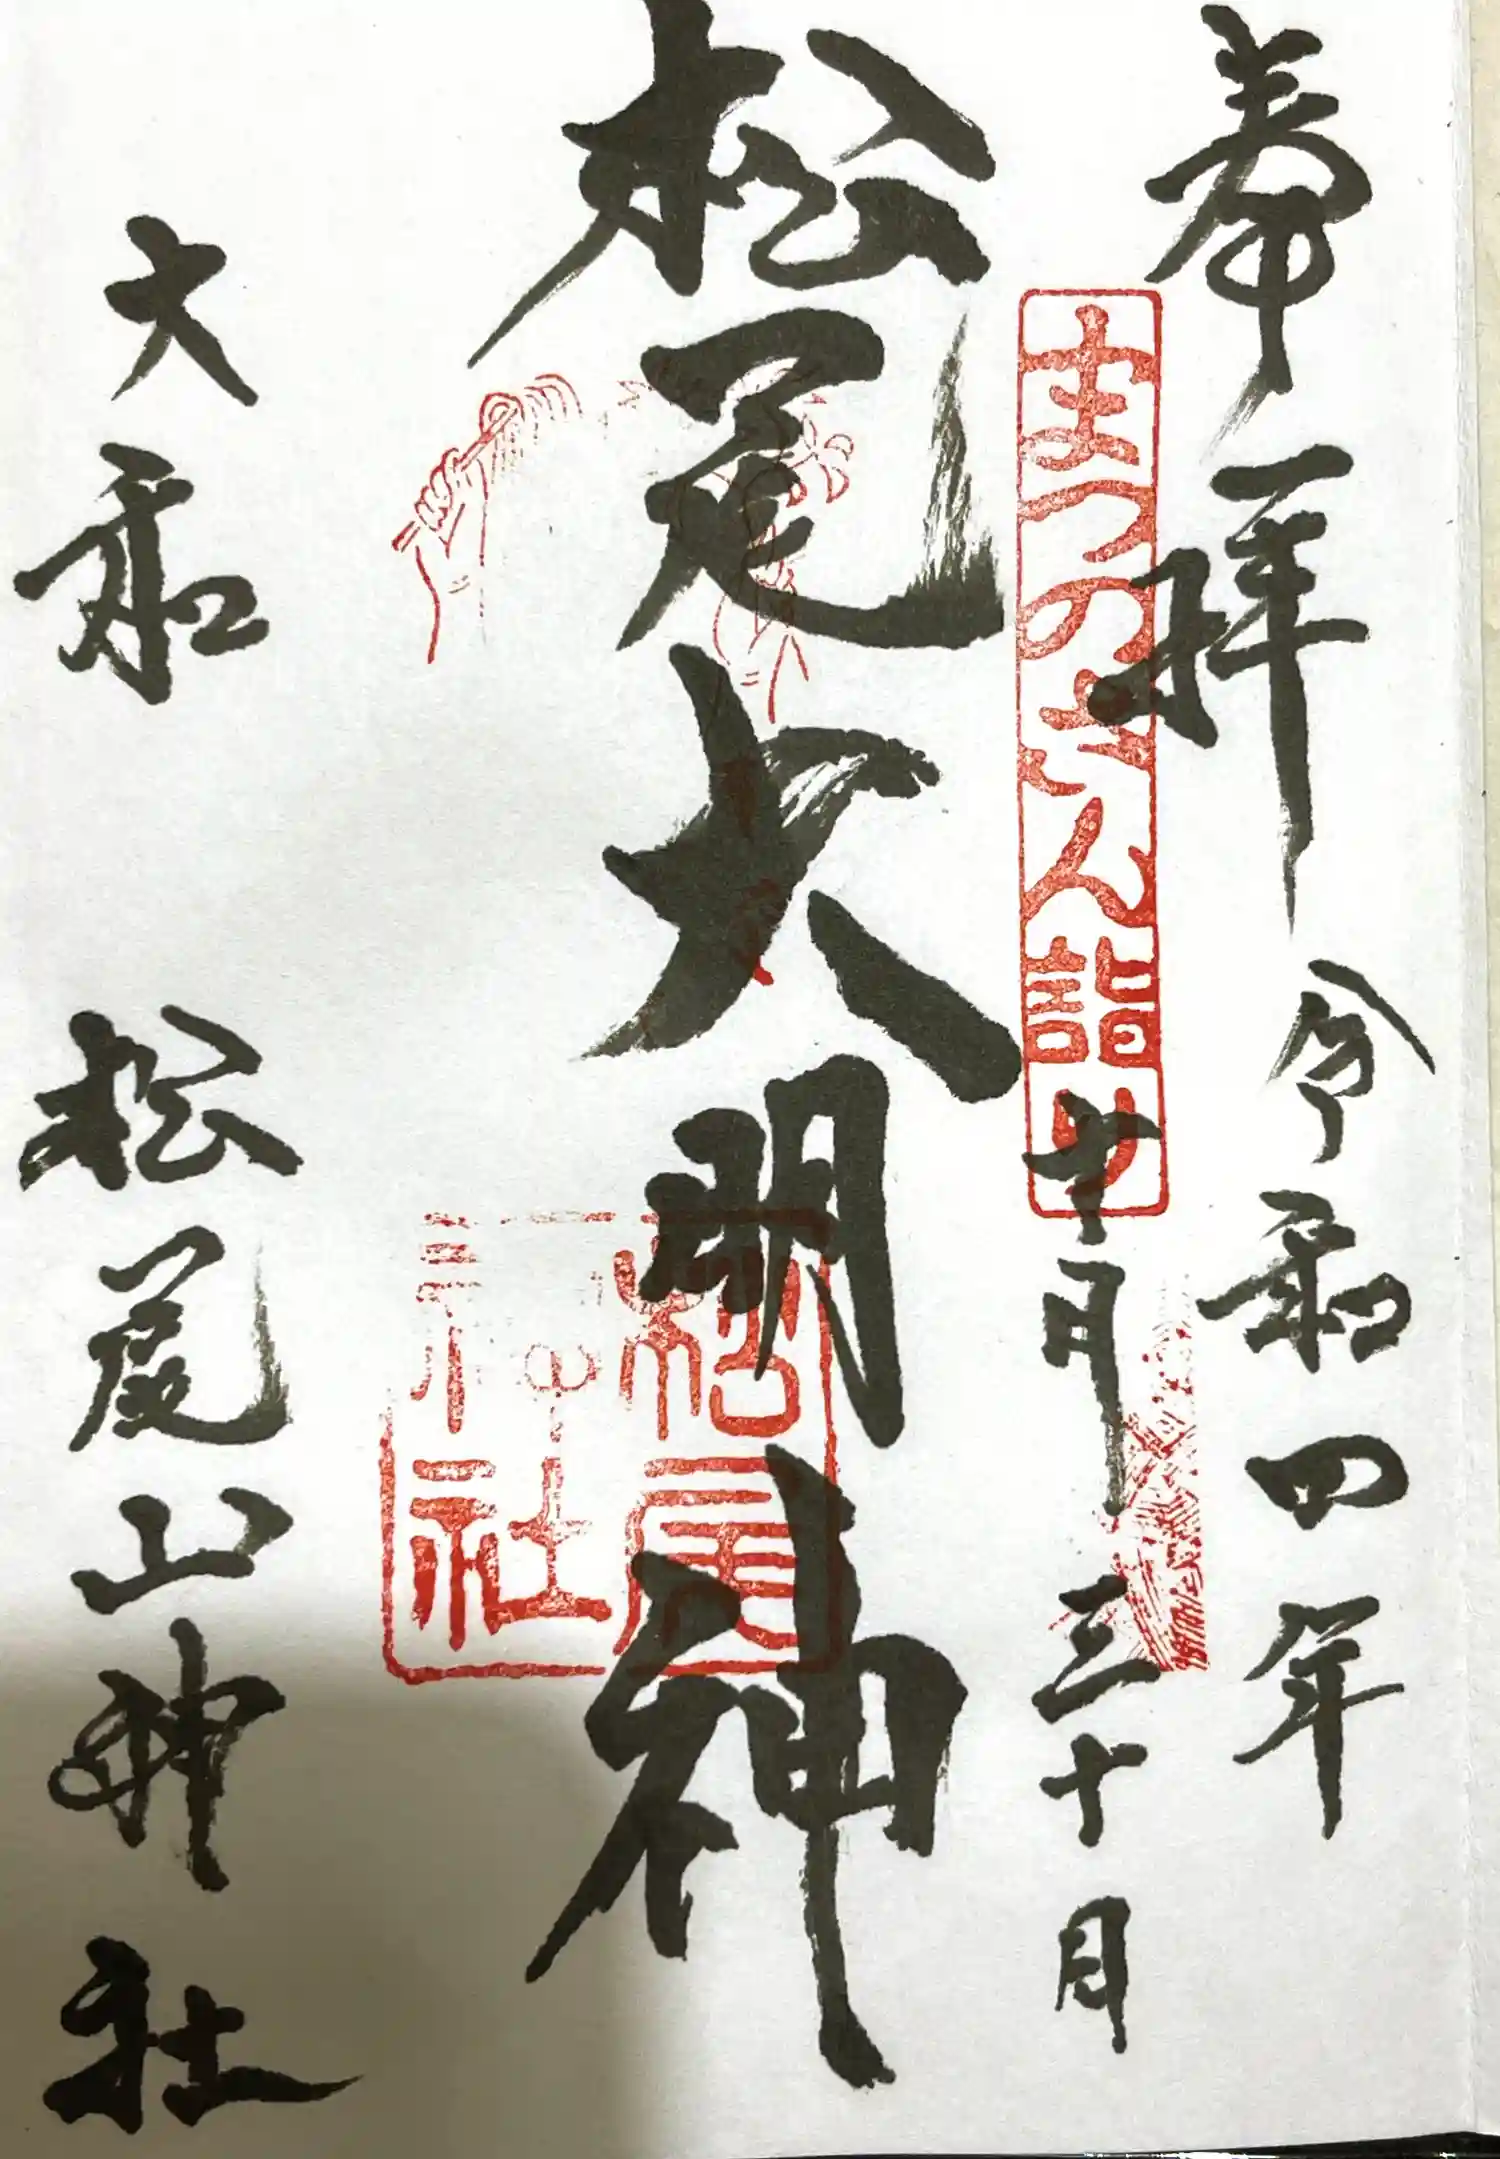 奉拝
令和四年
十月三十日
まつのさん詣り
松尾大明神
松尾神社
大和
松尾山神社